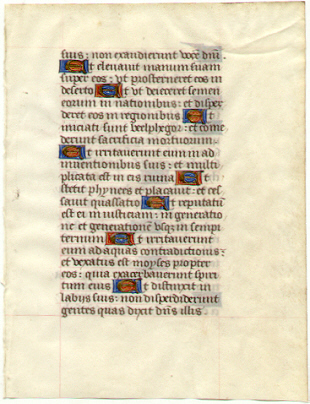 suis: non exaudierunt vocē dñi.
Et elevauit manum suam
super eos: vt prosterneret eos in
deserto Et vt deiceret semen
eorum in nationibus: et disper
deret eos in regionibus Et
iniciati sunt beelphegor: et come
derunt sacrificia mortuorum.
Et irritauerunt eum in ad
inuentionibus suis: et multi
plicata est in eis ruina Et
stetit phynees et placauit: et ces
sauit quassatio Et reputatū
est ei in iusticiam: in generatio
ne et generationē vsq; in sempi
ternum Et irritauerunt
eum ad aquas contradictionis:
et vexatus est moyses propter
eos: quia exacerbauerunt spiri
tum eius Et distinxit in
labijs suis: non disperdiderunt
gentes quas dixit dñs illis.